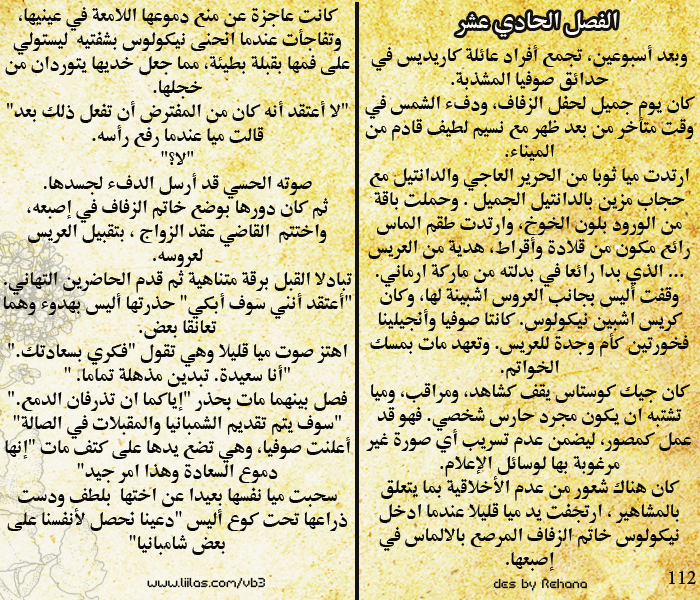 الفصل الحادي عشر
وبعد أسبوعين، تجمع أفراد عائلة كاريديس في
حدائق صوفيا المشذبة.
كان يوم جميل لحفل الزفاف، ودفء الشمس في
وقت متأخر من بعد ظهر مع نسيم لطيف قادم من
الميناء.
ارتدت ميا ثوبا من الحرير العاجي والدانتيل مع
حجاب مزين بالدانتيل الجميل . وحملت باقة
من الورود بلون الخوخ، وارتدت طقم الماس
رائع مكون من قلادة وأقراط، هدية من العريس
... الذي بدا رائعا في بدلته من ماركة ارماني.
وقفت أليس بجانب العروس اشبينة لها، وكان
كريس اشبين نيكولوس. كانتا صوفيا وأنجيلينا
فخورتين كأم وجدة للعريس. وتعهد مات بمسك
الخواتم.
كان جيك كوستاس يقف كشاهد، ومراقب، وميا
تشتبه ان يكون مجرد حارس شخصي. فهو قد
عمل كمصور، ليضمن عدم تسريب أي صورة غير
مرغوبة بها لوسائل الإعلام.
كان هناك شعور من عدم الأخلاقية بما يتعلق
بالمشاهير ، ارتجفت يد ميا قليلا عندما ادخل
نيكولوس خاتم الزفاف المرصع بالالماس في
إصبعها.
112
des by Rehana
كانت عاجزة عن منع دموعها اللامعة في عينيها،
وتفاجأت عندما انحنى نيكولوس بشفتيه ليستولي
على فمها بقبلة بطيئة، مما جعل خديها يتوردان من
خجلها.
"لا أعتقد أنه كان من المفترض أن تفعل ذلك بعد"
قالت ميا عندما رفع رأسه.
"لا؟"
صوته الحسي قد أرسل الدفء لجسدها.
ثم كان دورها بوضع خاتم الزفاف في إصبعه،
واختتم القاضي عقد الزواج ، بتقبيل العريس
لعروسه.
تبادلا القبل برقة متناهية ثم قدم الحاضرين التهاني.
"أعتقد أنني سوف أبكي" حذرتها أليس بهدوء وهما
تعانقا بعض.
اهتز صوت ميا قليلا وهي تقول "فكري بسعادتك."
"أنا سعيدة. تبدين مذهلة تماما. "
فصل بينهما مات بحذر "إياكما ان تذرفان الدمع."
"سوف يتم تقديم الشمبانيا والمقبلات في الصالة"
أعلنت صوفيا، وهي تضع يدها على كتف مات "إنها
دموع السعادة وهذا امر جيد"
سحبت ميا نفسها بعيدا عن اختها بلطف ودست
ذراعها تحت كوع أليس "دعينا نحصل لأنفسنا على
بعض شامبانيا"
www.liilas.com/vb3